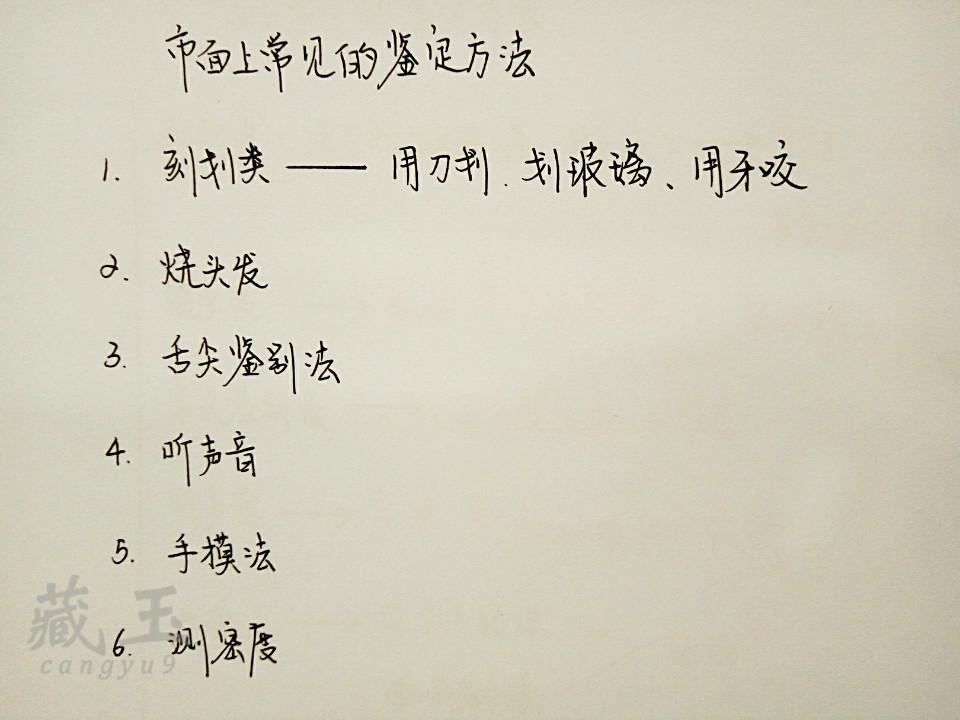 市面上常见的鉴定方法
1. 刻划类 —— 用刀划、划玻璃、用牙咬
2. 烧头发
3. 舌尖鉴别法
4. 听声音
5. 手模法
6. 测密度
藏玉
cangyu9